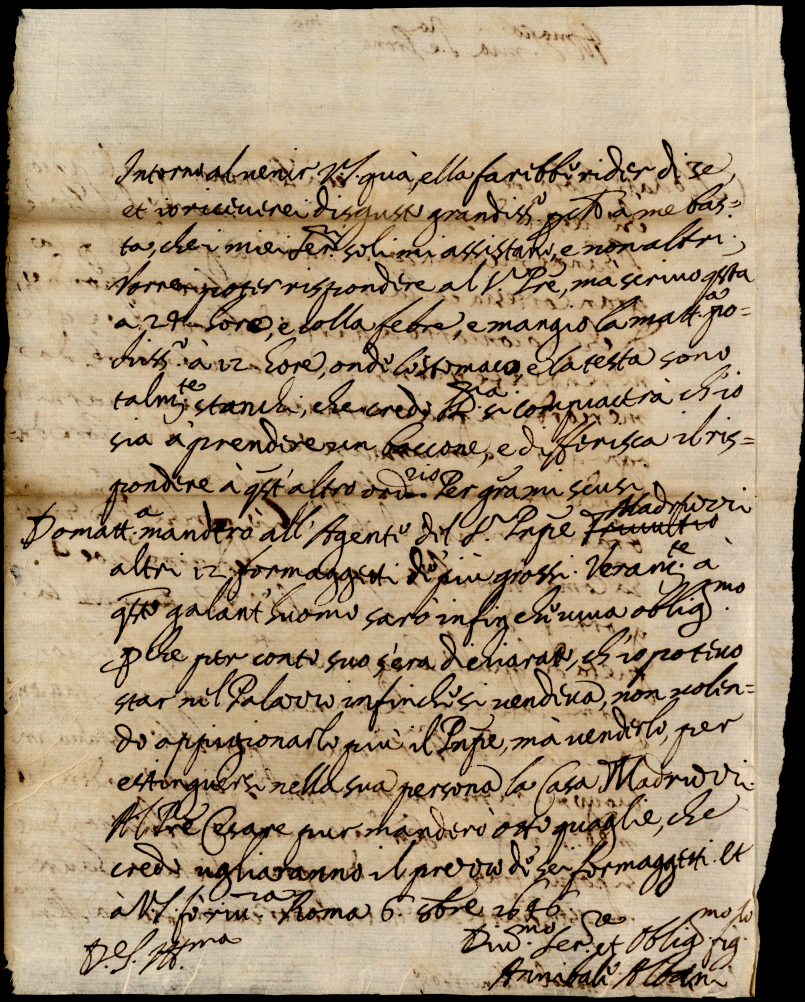 Intorno al venir V.S. quà, ella farebbe rider di se,
et io riceverei disgusto grandiss.º p.tº à me bas=
ta, che i miei Ser.ri soli mi assistano, e non altri.
Vorrei poter rispondere al S. Prê, ma scrivo qsta
à 24 hore, e colla febre, e mangio la matt.ª po=
chiss.º à 12 hore, onde lo stomaco, e la testa sono
talm.te stanchi, che credo si compiacerà ch'io
sia à prendere un boccone, e differisca il ris=
pondere à qst'altro ord.rio Per grã mi scusi
Domatt.ª manderò all'Agente del S. Prñpe Madruzzi
altri 12 formaggetti de più grossi. Veram.te à
qsto galant'huomo sarò infin che viva oblig.mo
pche per conto suo s'era dichiarato, ch'io potevo
star nel Palazzo infinche si vendeva, non volen=
do appigionarlo più il Prñpe, mà venderlo, per
estinguersi nella sua persona la Casa Madruzzi.
Al Prê Cesare pur manderò otto quaglie, che
credo uglieranno il prezzo de sei formaggetti. et
à V.S. fò riv.za Roma 6 8bre 1646
D. V.S. Ill.ma
Div.mo Ser.re et Oblig.mo fig.lo
Annibale Albani